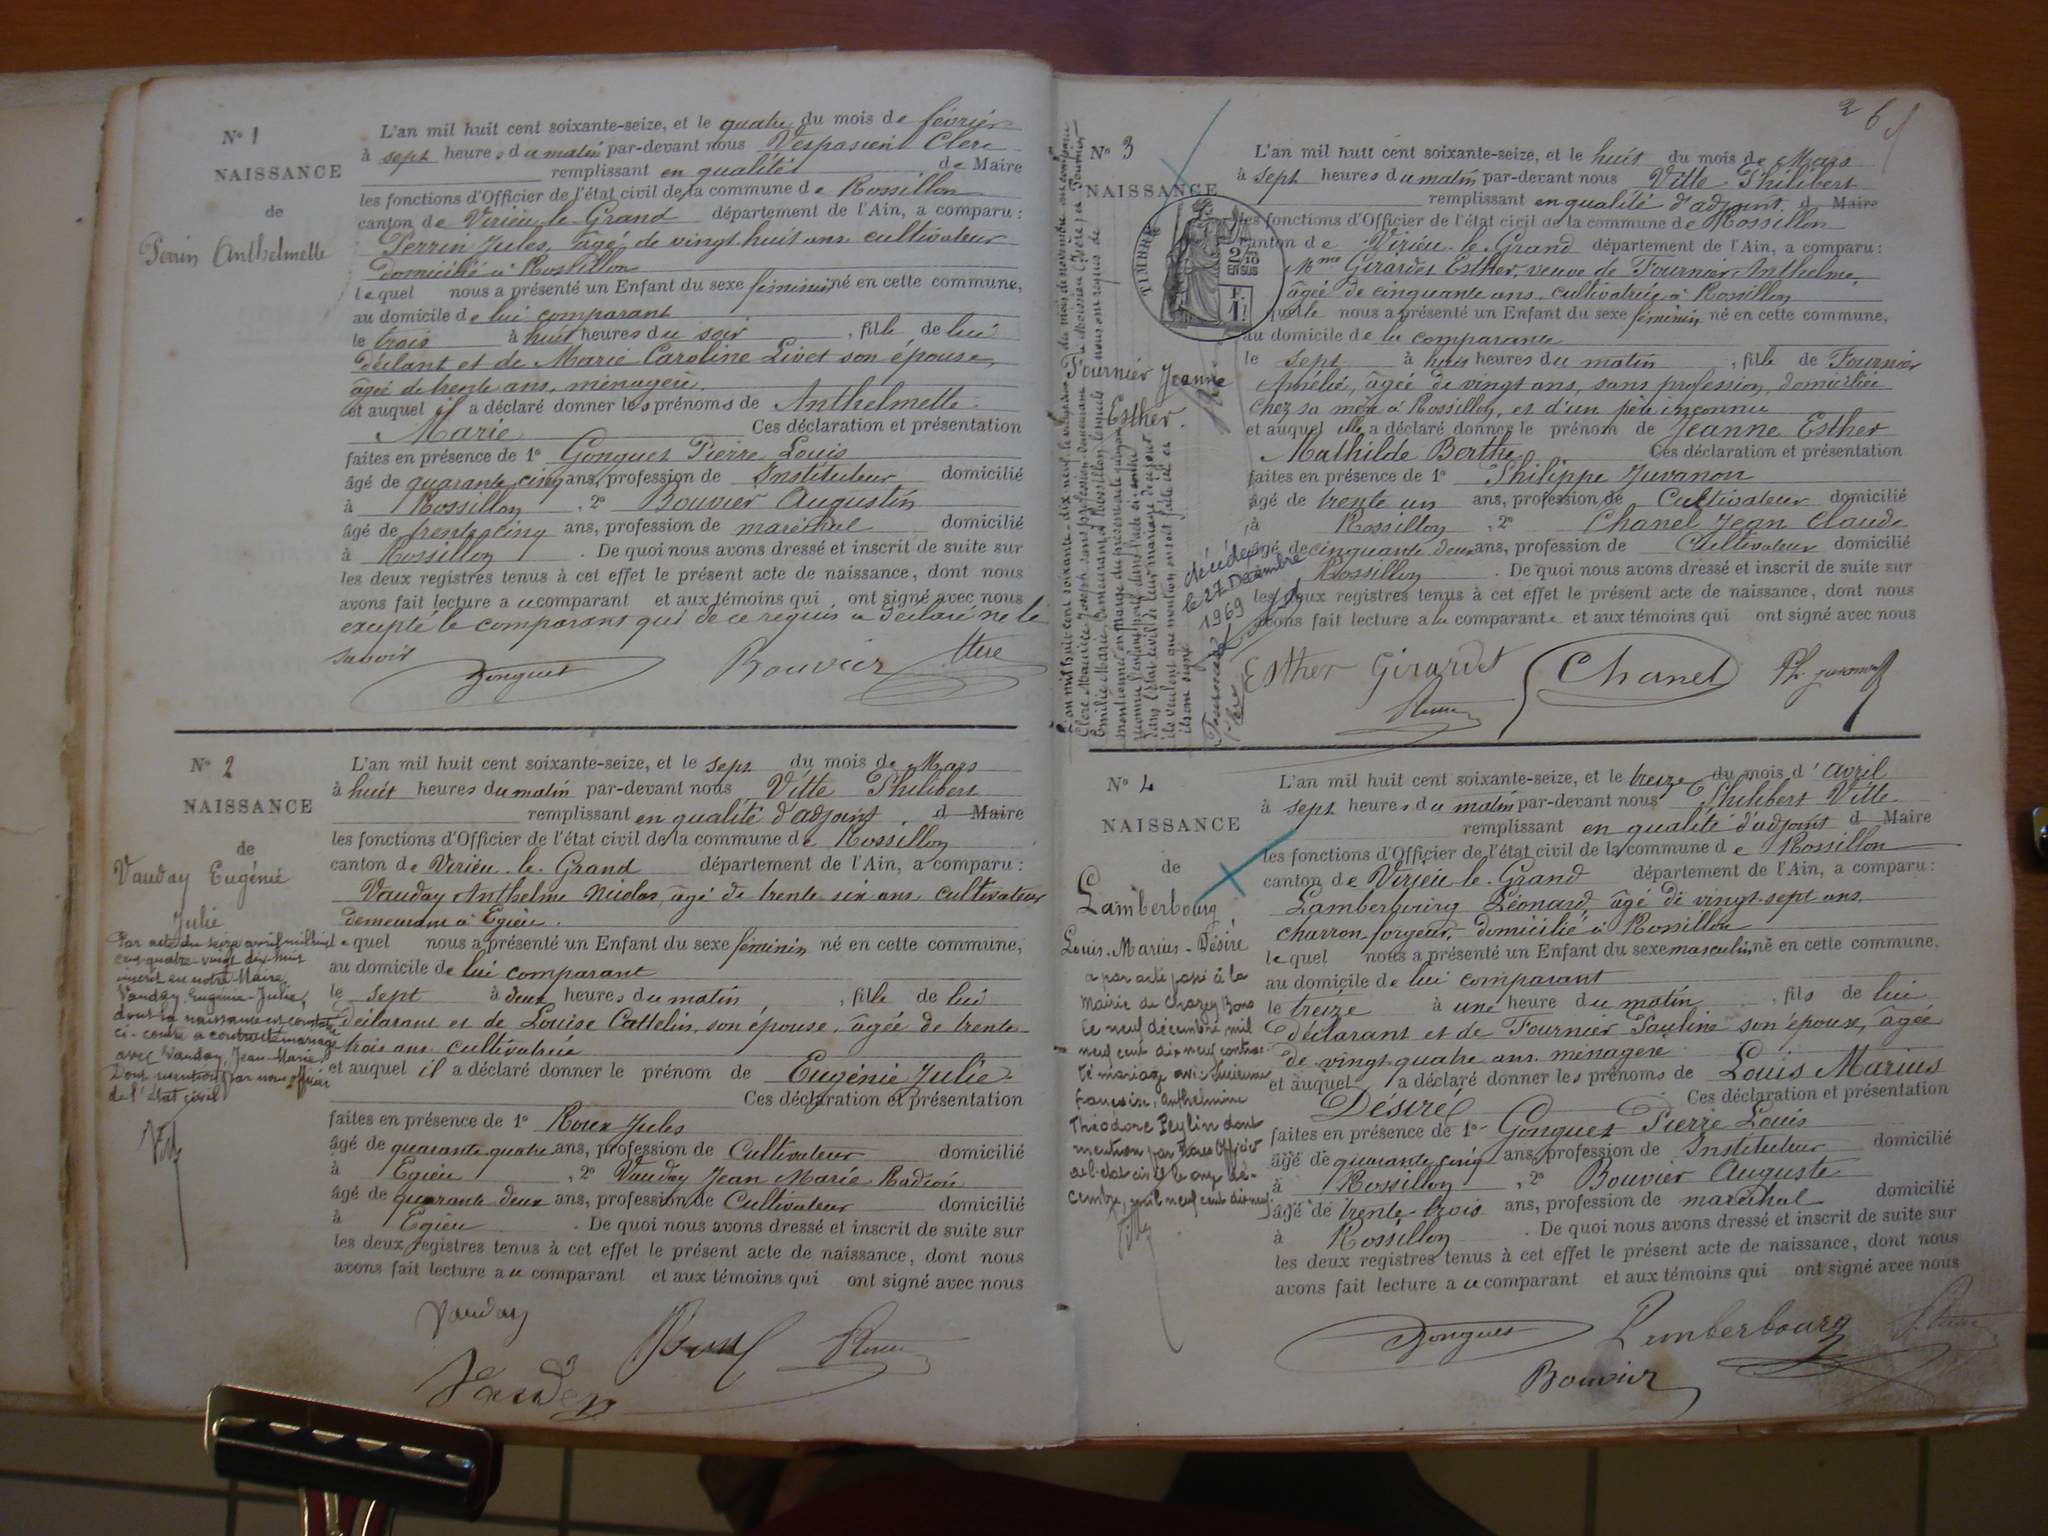 N° 1
NAISSANCE
de
Perrin Anthelmette
L'an mil huit cent soixante-seize, et le quatre du mois de février
à sept heures du matin par-devant nous Vespasien Clerc
remplissant en qualité de Maire
les fonctions d'Officier de l'état civil de la commune de Rossillon
canton de Virieu le Grand département de l'Ain, a comparu :
Perrin Jules, âgé de vingt-huit ans cultivateur
domicilié à Rossillon
lequel nous a présenté un Enfant du sexe féminin né en cette commune,
au domicile de lui comparant
le trois à huit heures du soir , fille de lui
déclarant et de Marie Caroline Livet son épouse,
âgée de trente ans, ménagère.
et auquel il a déclaré donner les prénoms de Anthelmette
Marie Ces déclaration et présentation
faites en présence de 1° Gonguet Pierre Louis
âgé de quarante cinq ans, profession de Instituteur domicilié
à Rossillon , 2° Bouvier Augustin
âgé de trente cinq ans, profession de maréchal domicilié
à Rossillon . De quoi nous avons dressé et inscrit de suite sur
les deux registres tenus à cet effet le présent acte de naissance, dont nous
avons fait lecture au comparant et aux témoins qui ont signé avec nous
excepté le comparant qui de ce requis a déclaré ne le
savoir
Gonguet Bouvier
N° 2
NAISSANCE
de
Vauday Eugénie
Julie
Par acte du seize avril mil huit
cent quatre-vingt dix-huit
inscrit en notre Mairie,
Vauday Eugénie-Julie,
dont la naissance est constatée
ci-contre a contracté mariage
avec Vauday, Jean-Marie.
Dont mention par nous officier
de l'état civil
L'an mil huit cent soixante-seize, et le sept du mois de Mars
à huit heures du matin par-devant nous Vitte Philibert
remplissant en qualité d'adjoint d Maire
les fonctions d'Officier de l'état civil de la commune de Rossillon
canton de Virieu le Grand département de l'Ain, a comparu :
Vauday Anthelme Nicolas, âgé de trente six ans cultivateur
demeurant à Egieu.
lequel nous a présenté un Enfant du sexe féminin né en cette commune,
au domicile de lui comparant
le sept à deux heures du matin , fille de lui
déclarant et de Louise Cattelin, son épouse, âgée de trente-
trois ans cultivatrice
et auquel il a déclaré donner le prénom de Eugénie Julie
Ces déclaration et présentation
faites en présence de 1° Roux Jules
âgé de quarante quatre ans, profession de Cultivateur domicilié
à Egieu , 2° Vauday Jean Marie
âgé de quarante deux ans, profession de Cultivateur domicilié
à Egieu . De quoi nous avons dressé et inscrit de suite sur
les deux registres tenus à cet effet le présent acte de naissance, dont nous
avons fait lecture au comparant et aux témoins qui ont signé avec nous
Vauday Roux
Vauday
26
N° 3
NAISSANCE
TIMBRE
2/10
EN SUS
F.
1
Fournier Jeanne
Esther.
décédée
le 27 Décembre
1969
L'an mil huit cent soixante-seize, et le huit du mois de Mars
à sept heures du matin par-devant nous Vitte Philibert
remplissant en qualité d'adjoint d Maire
les fonctions d'Officier de l'état civil de la commune de Rossillon
canton de Virieu le Grand département de l'Ain, a comparu :
Mme Girardet Esther, veuve de Fournier Anthelme,
âgée de cinquante ans, cultivatrice à Rossillon
quelle nous a présenté un Enfant du sexe féminin né en cette commune,
au domicile de la comparante
le sept à huit heures du matin , fille de Fournier
Amélie, âgée de vingt ans, sans profession, domiciliée
chez sa mère à Rossillon, et d'un père inconnu
et auquel elle a déclaré donner le prénom de Jeanne Esther
Mathilde Berthe Ces déclaration et présentation
faites en présence de 1° Philippe Juvanon
âgé de trente un ans, profession de Cultivateur domicilié
à Rossillon , 2° Chanel Jean Claude
âgé de cinquante deux ans, profession de Cultivateur domicilié
Rossillon . De quoi nous avons dressé et inscrit de suite sur
les deux registres tenus à cet effet le présent acte de naissance, dont nous
avons fait lecture au comparante et aux témoins qui ont signé avec nous
Esther Girardet Chanel Ph. juvanon
N° 4
NAISSANCE
de
Lamberbourg
Louis-Marius-Désiré
a par acte passé à la
Mairie de Chazey Bons
le neuf décembre mil
neuf cent dix neuf contrac-
té mariage avec
françoise, Anthelmine
Théodore Peylin dont
mention par nous Officier
de l'état civil le onze dé-
cembre, mil neuf cent dix neuf.
L'an mil huit cent soixante-seize, et le treize du mois d'avril
à sept heures du matin par-devant nous Philibert Vitte
remplissant en qualité d'adjoint d Maire
les fonctions d'Officier de l'état civil de la commune de Rossillon
canton de Virieu le Grand département de l'Ain, a comparu :
Lamberbourg Léonard, âgé de vingt-sept ans,
charron forgeur, domicilié à Rossillon
lequel nous a présenté un Enfant du sexe masculin né en cette commune,
au domicile de lui comparant
le treize à une heure du matin , fils de lui
déclarant et de Fournier Pauline son épouse, âgée
de vingt-quatre ans ménagère
et auquel a déclaré donner les prénoms de Louis Marius
Désiré Ces déclaration et présentation
faites en présence de 1° Gonguet Pierre Louis
âgé de quarante cinq ans, profession de Instituteur domicilié
à Rossillon , 2° Bouvier Auguste
âgé de trente-trois ans, profession de maréchal domicilié
à Rossillon . De quoi nous avons dressé et inscrit de suite sur
les deux registres tenus à cet effet le présent acte de naissance, dont nous
avons fait lecture au comparant et aux témoins qui ont signé avec nous
Gonguet Lamberbourg
Bouvier